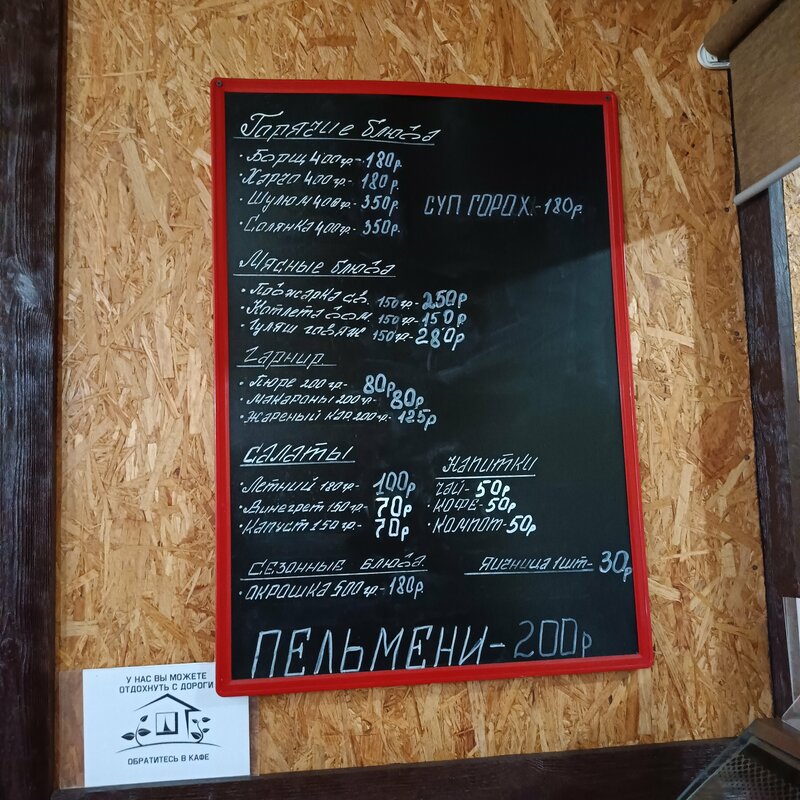 Горячие блюда
· Борщ 400гр- 180р.
· Харчо 400гр- 180р.
· Шулюм 400гр- 350р.
· Солянка 400гр- 350р.
СУП ГОРОХ.-180р.
Мясные блюда
· Поджарка св. 150гр- 250р
· Котлета дом. 150гр- 150р
· Гуляш говяж 150гр- 280р
Гарнир
· Пюре 200гр- 80р
· Макароны 200гр- 80р
· Жареный кар. 200гр- 125р
Салаты
· Летний 180гр- 100р
· Винегрет 150гр- 70р
· Капуст 150гр- 70р
Напитки
· Чай- 50р
· Кофе- 50р
· Компот- 50р
Сезонные блюда
· Окрошка 500гр- 180р.
Яичница 1шт- 30р
ПЕЛЬМЕНИ-200р
У НАС ВЫ МОЖЕТЕ
ОТДОХНУТЬ С ДОРОГИ
ОБРАТИТЕСЬ В КАФЕ